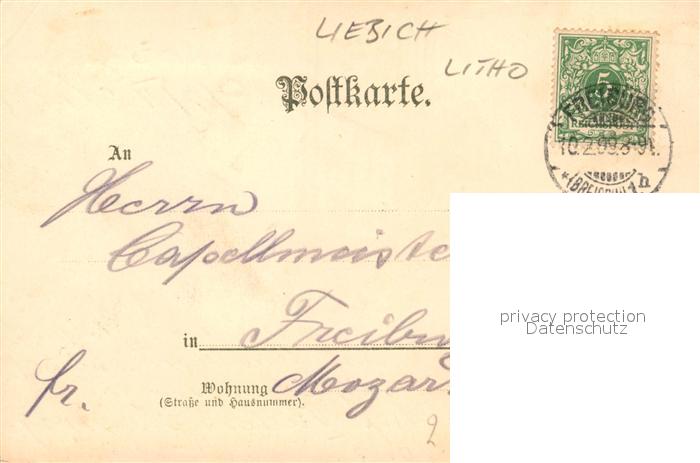 LIEBICH
LITHO
Postkarte.
5
FREIBURG
REICHSPOST
10.2.99.8-9V.
*(BREISGAU)1h
An
Herrn
Capellmeiste
in Freibu
Wohnung Mozar
(Straße und Hausnummer).
fr.
2
privacy protection
Datenschutz